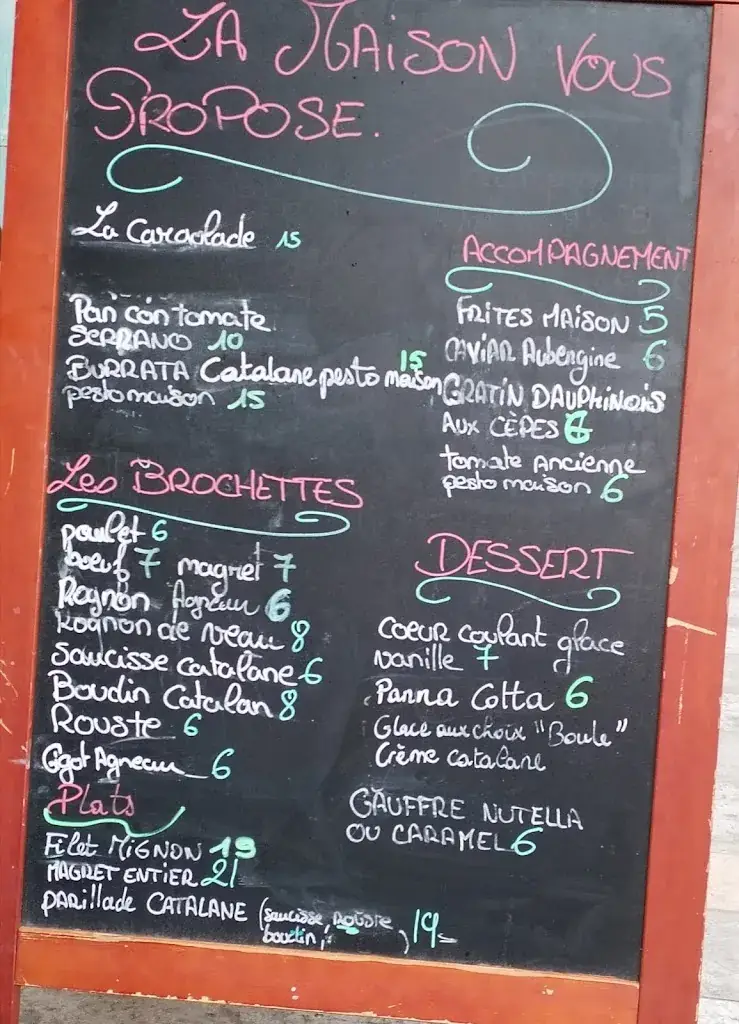 LA MAiSON VOUS
PROPOSE.
La Caracolade 15
Pan con tomate
SERRANO 10
BURRATA Catalane pesto maison 15
pesto maison 15
Les BROCHETTES
poulet 6
boeuf 7 magret 7
Rognon Agneau 6
Rognon de veau 8
Saucisse catalane 6
Boudin Catalan 8
ROUSTE 6
Ggot Agneau 6
Plats
Filet MiGNON 19
MAGRET ENTIER 21
PARillade CATALANE (saucisse, ROUSTE,
boudin, 19
ACCOMPAGNEMENT
FRITES MAISON 5
CAViAR Aubergine 6
GRATIN DAUPHINOIS
AUX CÈPES 6
tomate ANCiENNE
pesto maison 6
DESSERT
COEUR COULANT glace
vanille 7
Panna Cotta 6
Glace aux choix "Boule"
Crème catalane
GAUFFRE NUTELLA
OU CARAMEL 6